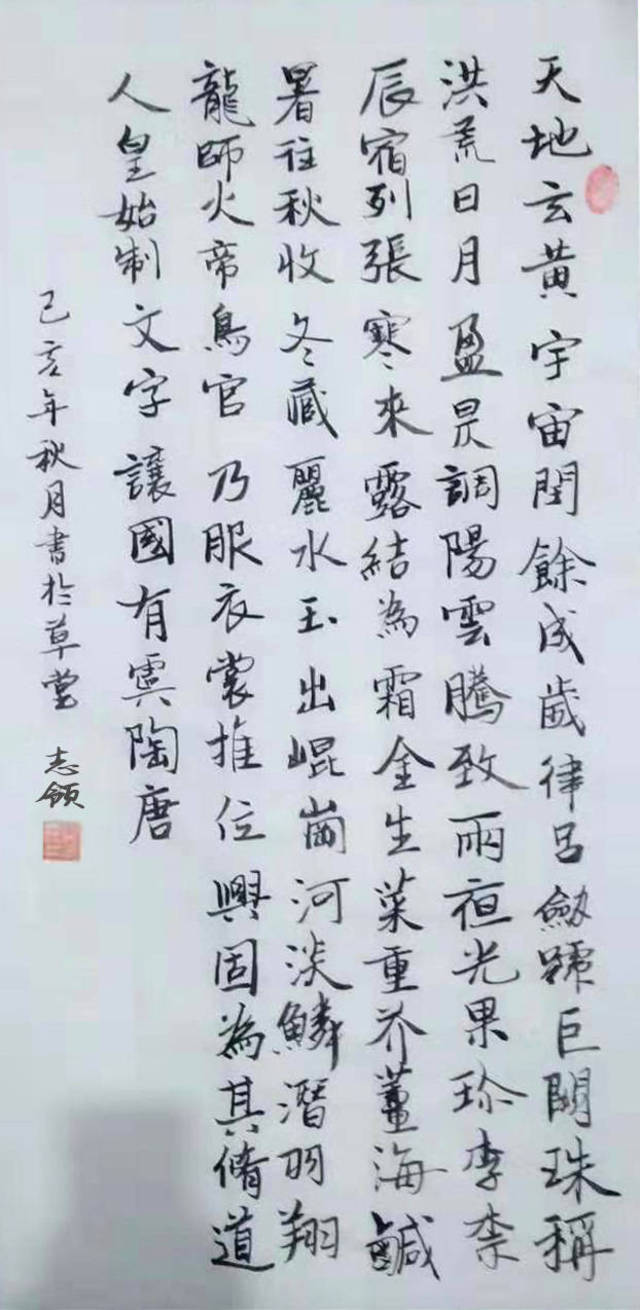 天地玄黃宇宙閏餘成歲律呂劔號巨闕珠稱
洪荒日月盈昃調陽雲騰致雨夜光果珍李柰
辰宿列張寒來露結為霜金生菜重芥薑海鹹
暑往秋收冬藏麗水玉出崐崗河淡鱗潛羽翔
龍師火帝鳥官乃服衣裳推位興固為其脩道
人皇始制文字讓國有虞陶唐
己亥年秋月書於草堂
志領